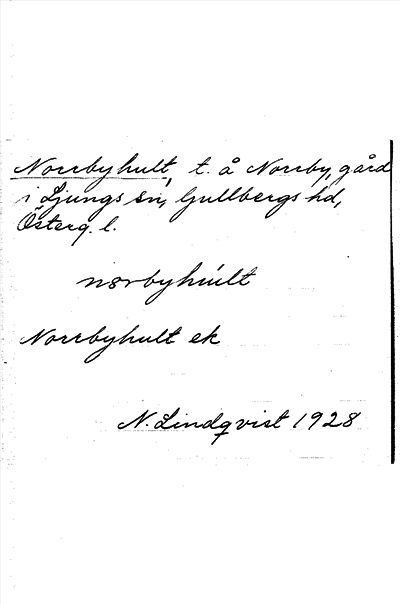 Norrbyhult, t. å Norrby, gård
i Ljungs sn, Gullbergs hd,
Österg. l.
norbyhúlt
Norrbyhult ek
N. Lindqvist 1928